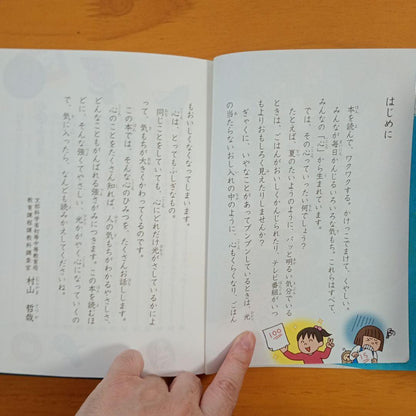 はじめに
本を読んで、ワクワクする。かけっこでまけて、くやしい。
みんなが毎日かんじるいろいろな気もち、これらはすべて、
みんなの「心」から生まれています。
では、その心っていったい何でしょう？
たとえば、夏のたいようのように、パッと明るい気分でいる
ときは、ごはんがおいしくかんじられたり、テレビ番組がいつ
もよりおもしろく見えたりしませんか？
ぎゃくに、いやなことがあってプンプンしているときは、光
の当たらないおし入れの中のように、心もくらくなり、ごはん
100
もおいしくなくなってしまいます。
心は、とってもふしぎなもの。
同じことをしていても、心にどれだけ光がさしているかによ
って、気もちが大きくかわってくるのです。
この本では、そんな心のひみつを、たくさんお話しします。
心のことをたくさん知れば、人の気もちがわかるやさしさ、
どんなこともがんばれる強さがみにつきます。この本を読むほ
どに、そんな強くてやさしい、光かがやく心になっていくの
で、気に入ったら、なんども読みかえしてくださいね。
文部科学省初等中等教育局
教育課程課教科調査官
村山 哲哉